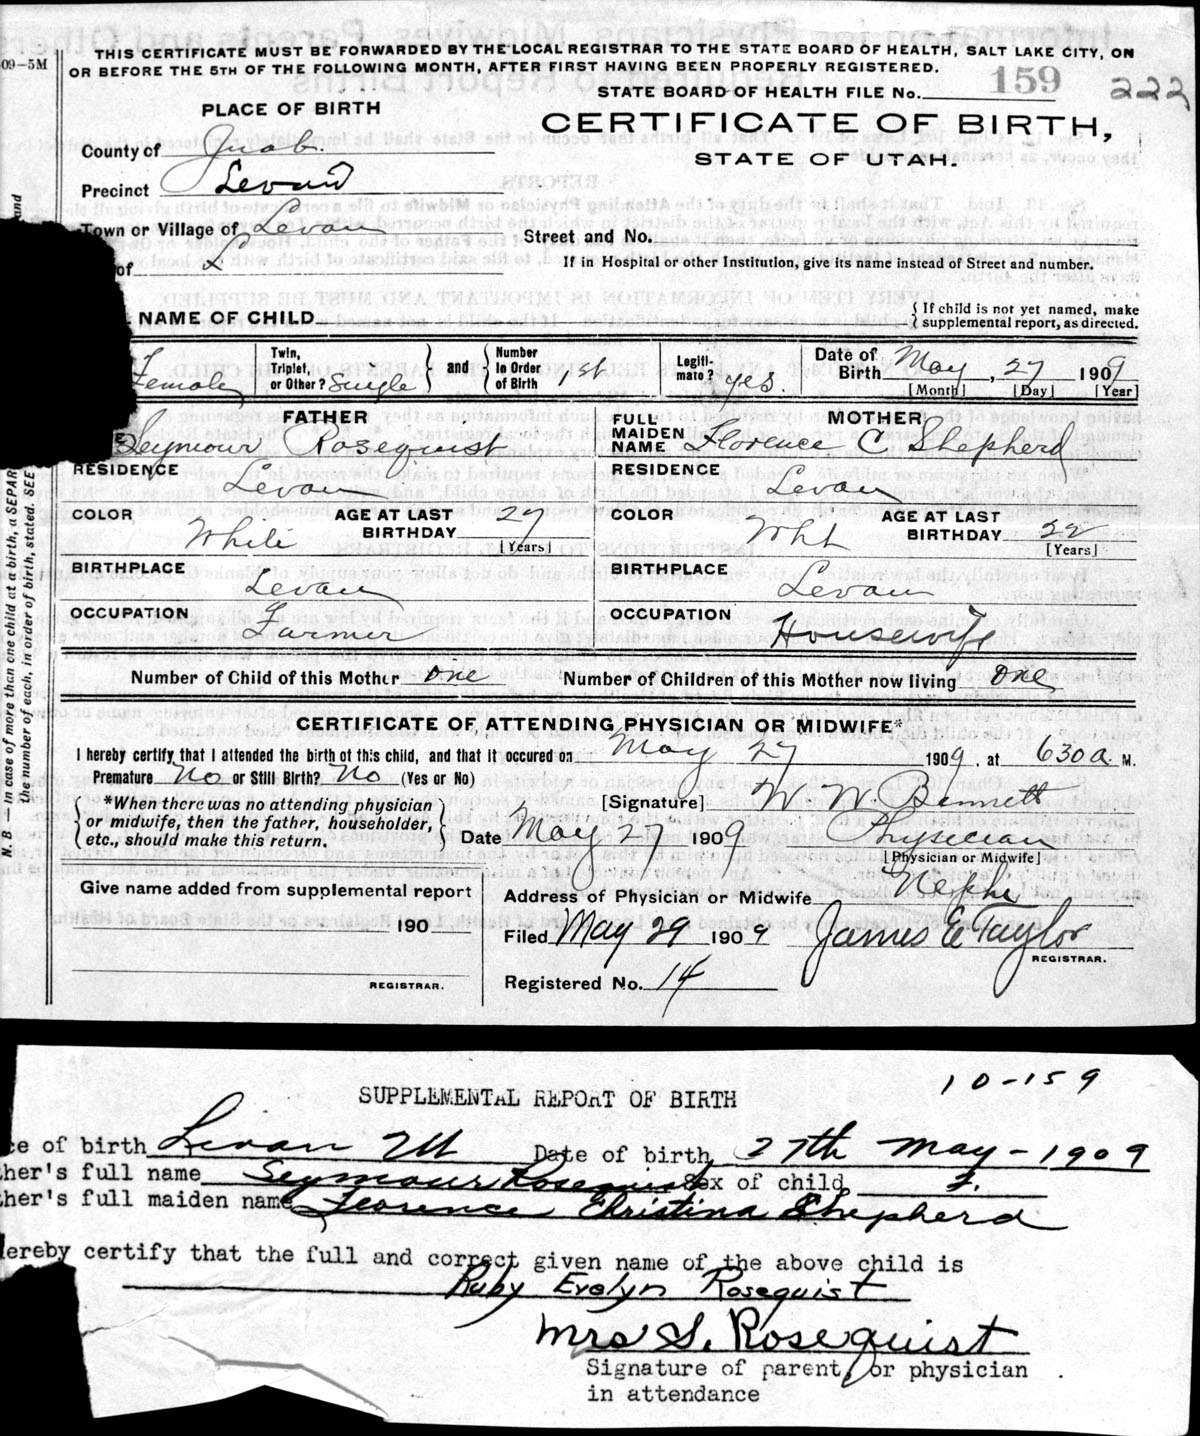 THIS CERTIFICATE MUST BE FORWARDED BY THE LOCAL REGISTRAR TO THE STATE BOARD OF HEALTH, SALT LAKE CITY, ON
09-5M OR BEFORE THE 5TH OF THE FOLLOWING MONTH, AFTER FIRST HAVING BEEN PROPERLY REGISTERED.
STATE BOARD OF HEALTH FILE No. 159 222
PLACE OF BIRTH
CERTIFICATE OF BIRTH,
STATE OF UTAH.
County of Juab.
Precinct Levan
Town or Village of Levan
Street and No.
of
If in Hospital or other Institution, give its name instead of Street and number.
NAME OF CHILD
{If child is not yet named, make
supplemental report, as directed.
Female Twin, Triplet, or Other? Single } and { Number in Order of Birth 1st Legiti-mate? yes. Date of Birth May, 27 1909
[Month] [Day] [Year]
FATHER
Seymour Rosequist
FULL MAIDEN NAME MOTHER Florence C Shepherd
RESIDENCE Levan
RESIDENCE Levan
COLOR White AGE AT LAST BIRTHDAY 27 [Years]
COLOR Wht AGE AT LAST BIRTHDAY 22 [Years]
BIRTHPLACE Levan
BIRTHPLACE Levan
OCCUPATION Farmer
OCCUPATION Housewife
Number of Child of this Mother one Number of Children of this Mother now living one
CERTIFICATE OF ATTENDING PHYSICIAN OR MIDWIFE*
I hereby certify that I attended the birth of this child, and that it occured on May 27 1909, at 630 a. M.
Premature No or Still Birth? No (Yes or No)
{*When there was no attending physician
or midwife, then the father, householder,
etc., should make this return.}
[Signature] W W Bennett
Date May 27 1909 Physician
[Physician or Midwife]
Give name added from supplemental report
190
REGISTRAR.
Address of Physician or Midwife Nephi
Filed May 29 1909 James E Taylor
REGISTRAR.
Registered No. 14
N. B.—In case of more than one child at a birth, a SEPAR
and
the number of each, in order of birth, stated. SEE
10-159
SUPPLEMENTAL REPORT OF BIRTH
ce of birth Levan Ut Date of birth 27th May-1909
ther's full name Seymour Rosequist Sex of child F.
ther's full maiden name Florence Christina Shepherd
ereby certify that the full and correct given name of the above child is
Ruby Evelyn Rosequist
Mrs S. Rosequist
Signature of parent, or physician
in attendance